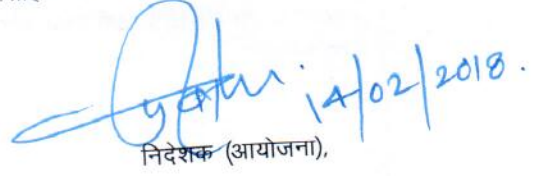 14/02/2018.
निदेशक (आयोजना),